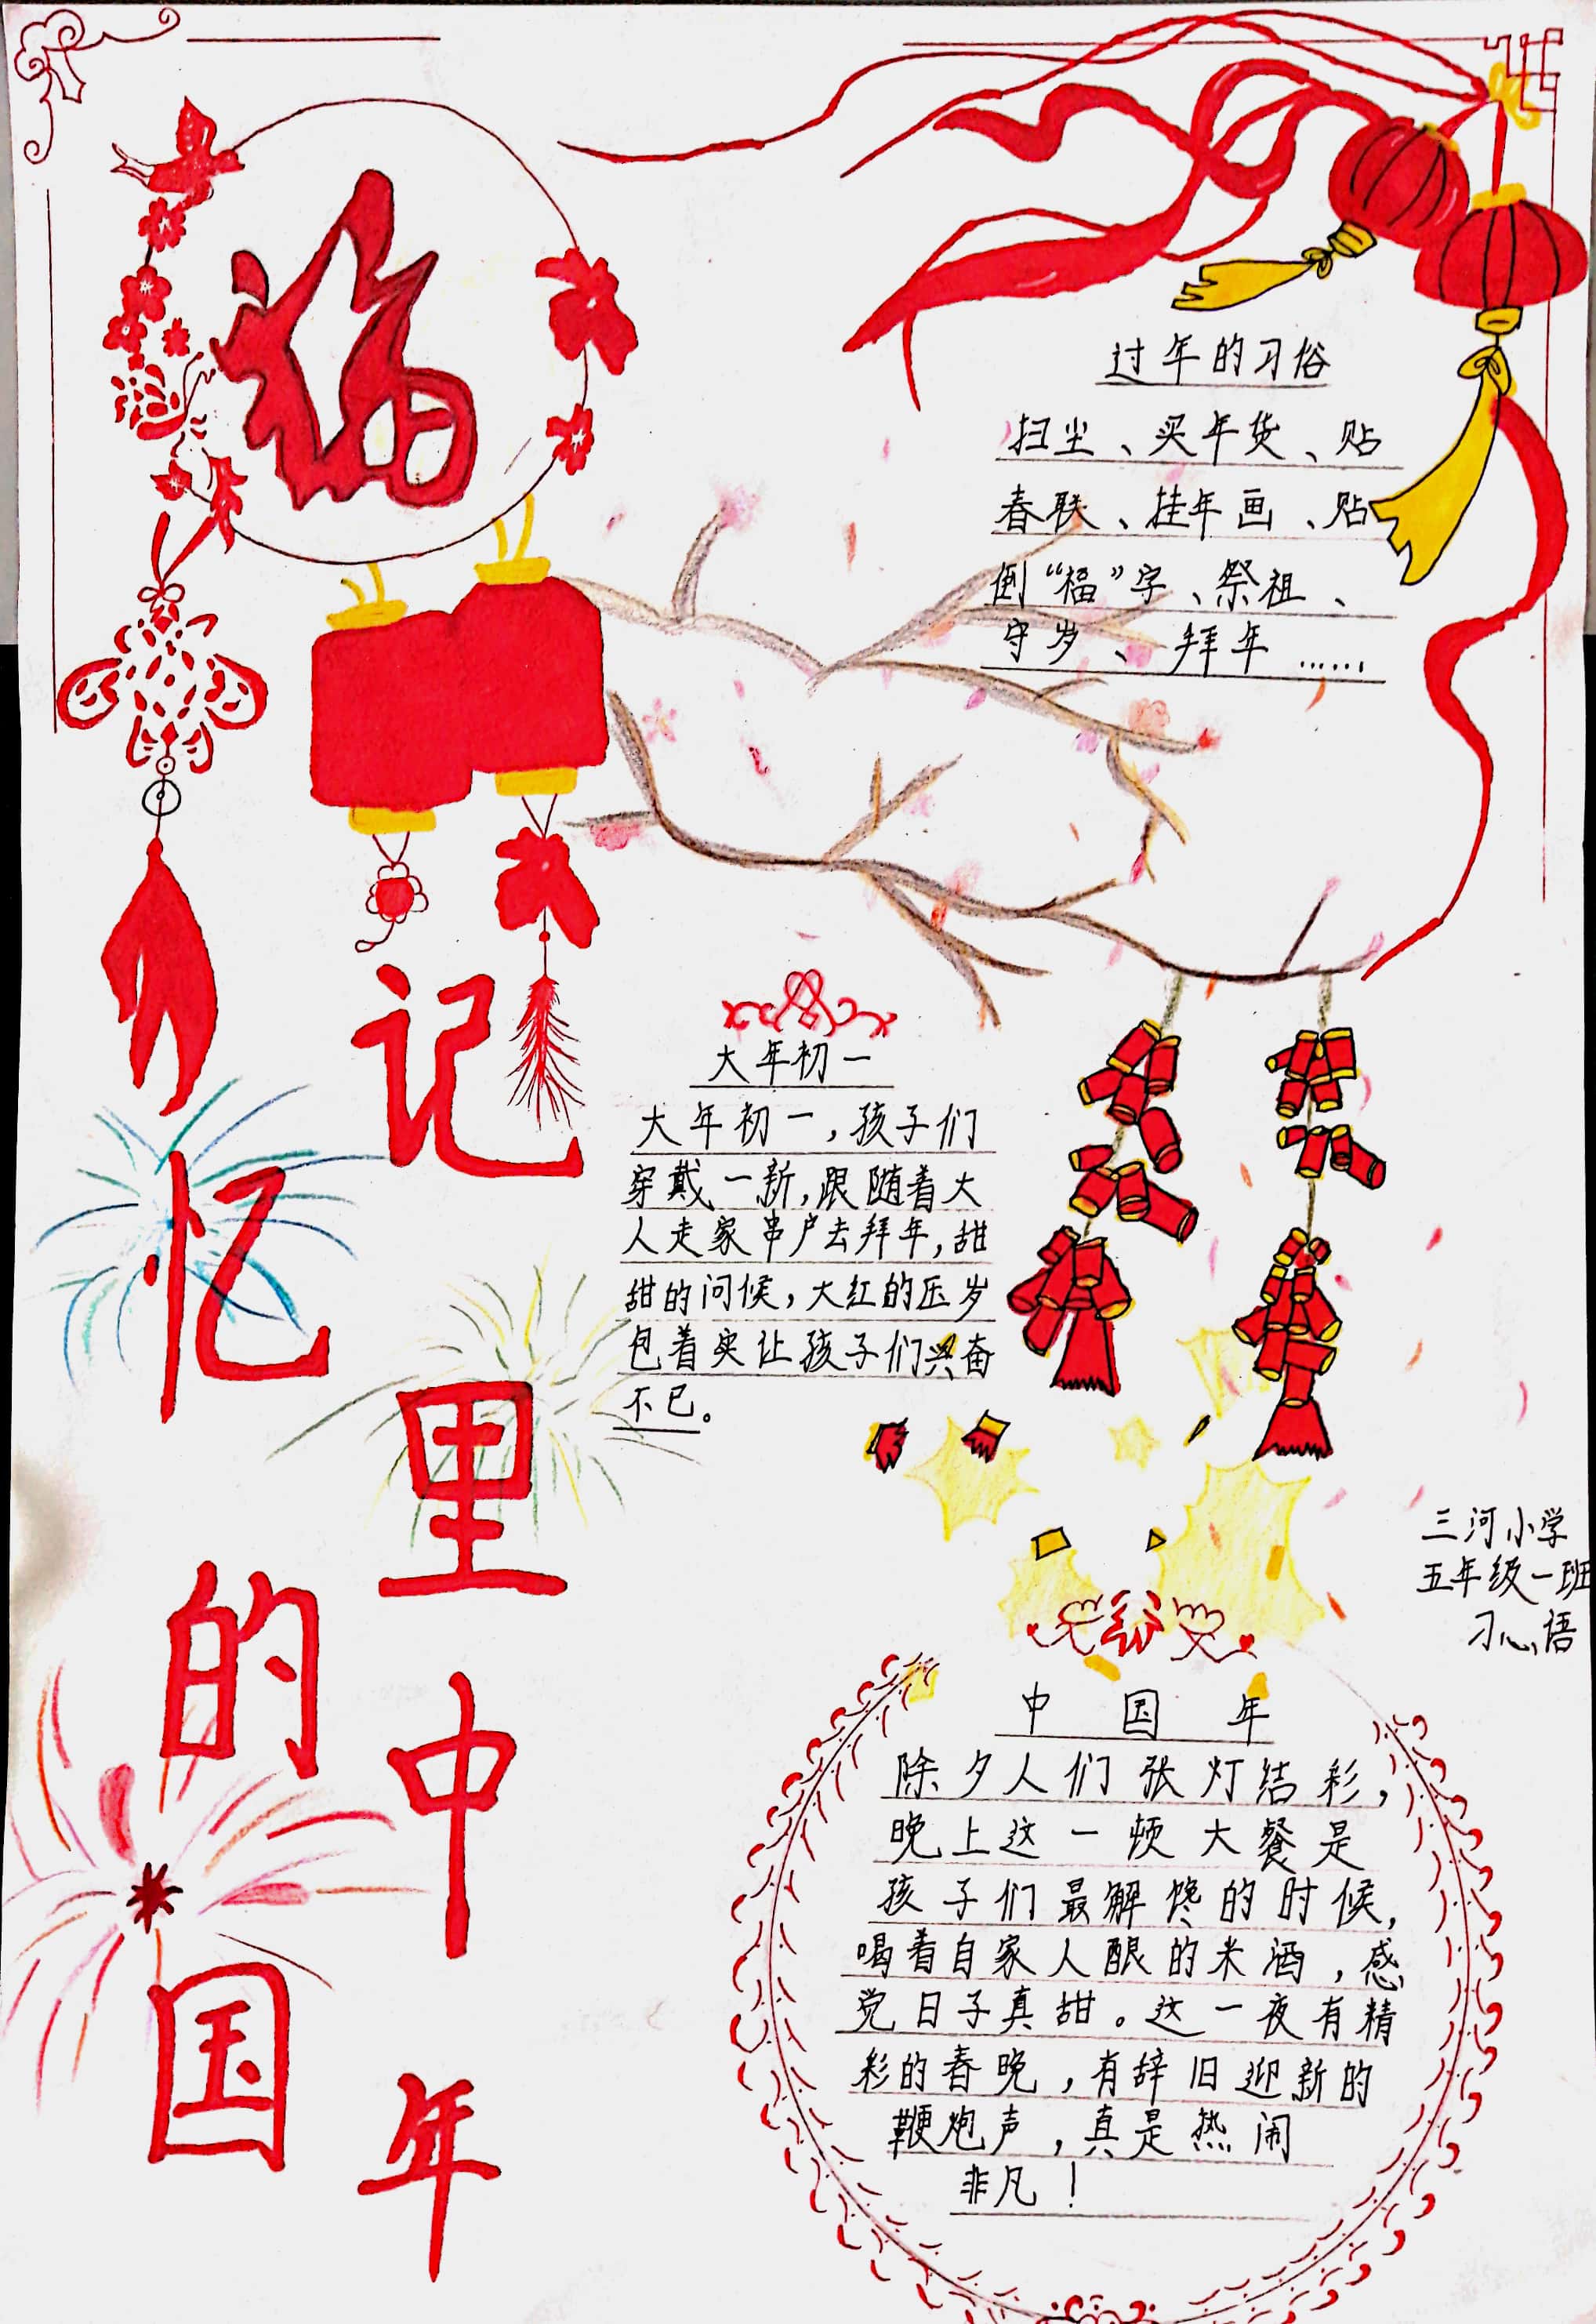 福
记忆里的中国年
过年的习俗
扫尘、买年货、贴
春联、挂年画、贴
倒“福”字、祭祖、
守岁、拜年……
大年初一
大年初一，孩子们
穿戴一新，跟随着大
人走家串户去拜年，甜
甜的问候，大红的压岁
包着实让孩子们兴奋
不已。
三河小学
五年级一班
刁心语
中国年
除夕人们张灯结彩，
晚上这一顿大餐是
孩子们最解馋的时候，
喝着自家人酿的米酒，感
觉日子真甜。这一夜有精
彩的春晚，有辞旧迎新的
鞭炮声，真是热闹
非凡！